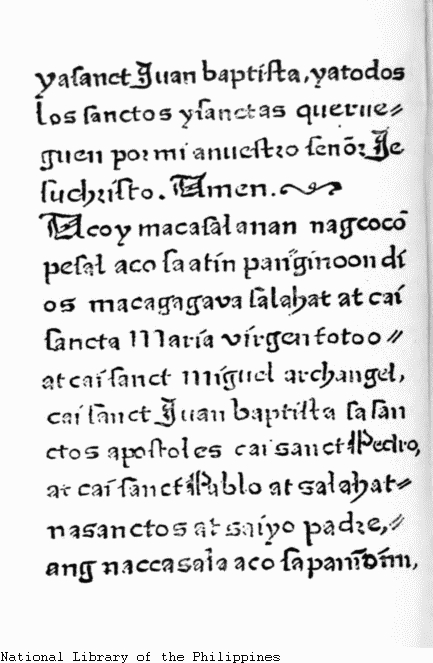 yasanct Juan baptista, yatodos
los sanctos ysanctas querue⸗
guen por mi anuestro señor Je
suchristo. Amen.
Acoy macasalanan nagcocō
pesal aco saatin panginoon di
os macagagava salahat at cai
sancta Maria virgen totoo⸗
at cai sanct miguel archangel,
cai sanct Juan baptista sasan
ctos apostoles cai sanct Pedro,
at cai sanct Pablo at salahat⸗
nasanctos at saiyo padre,⸗
ang naccasala aco sapanimdim,
National Library of the Philippines